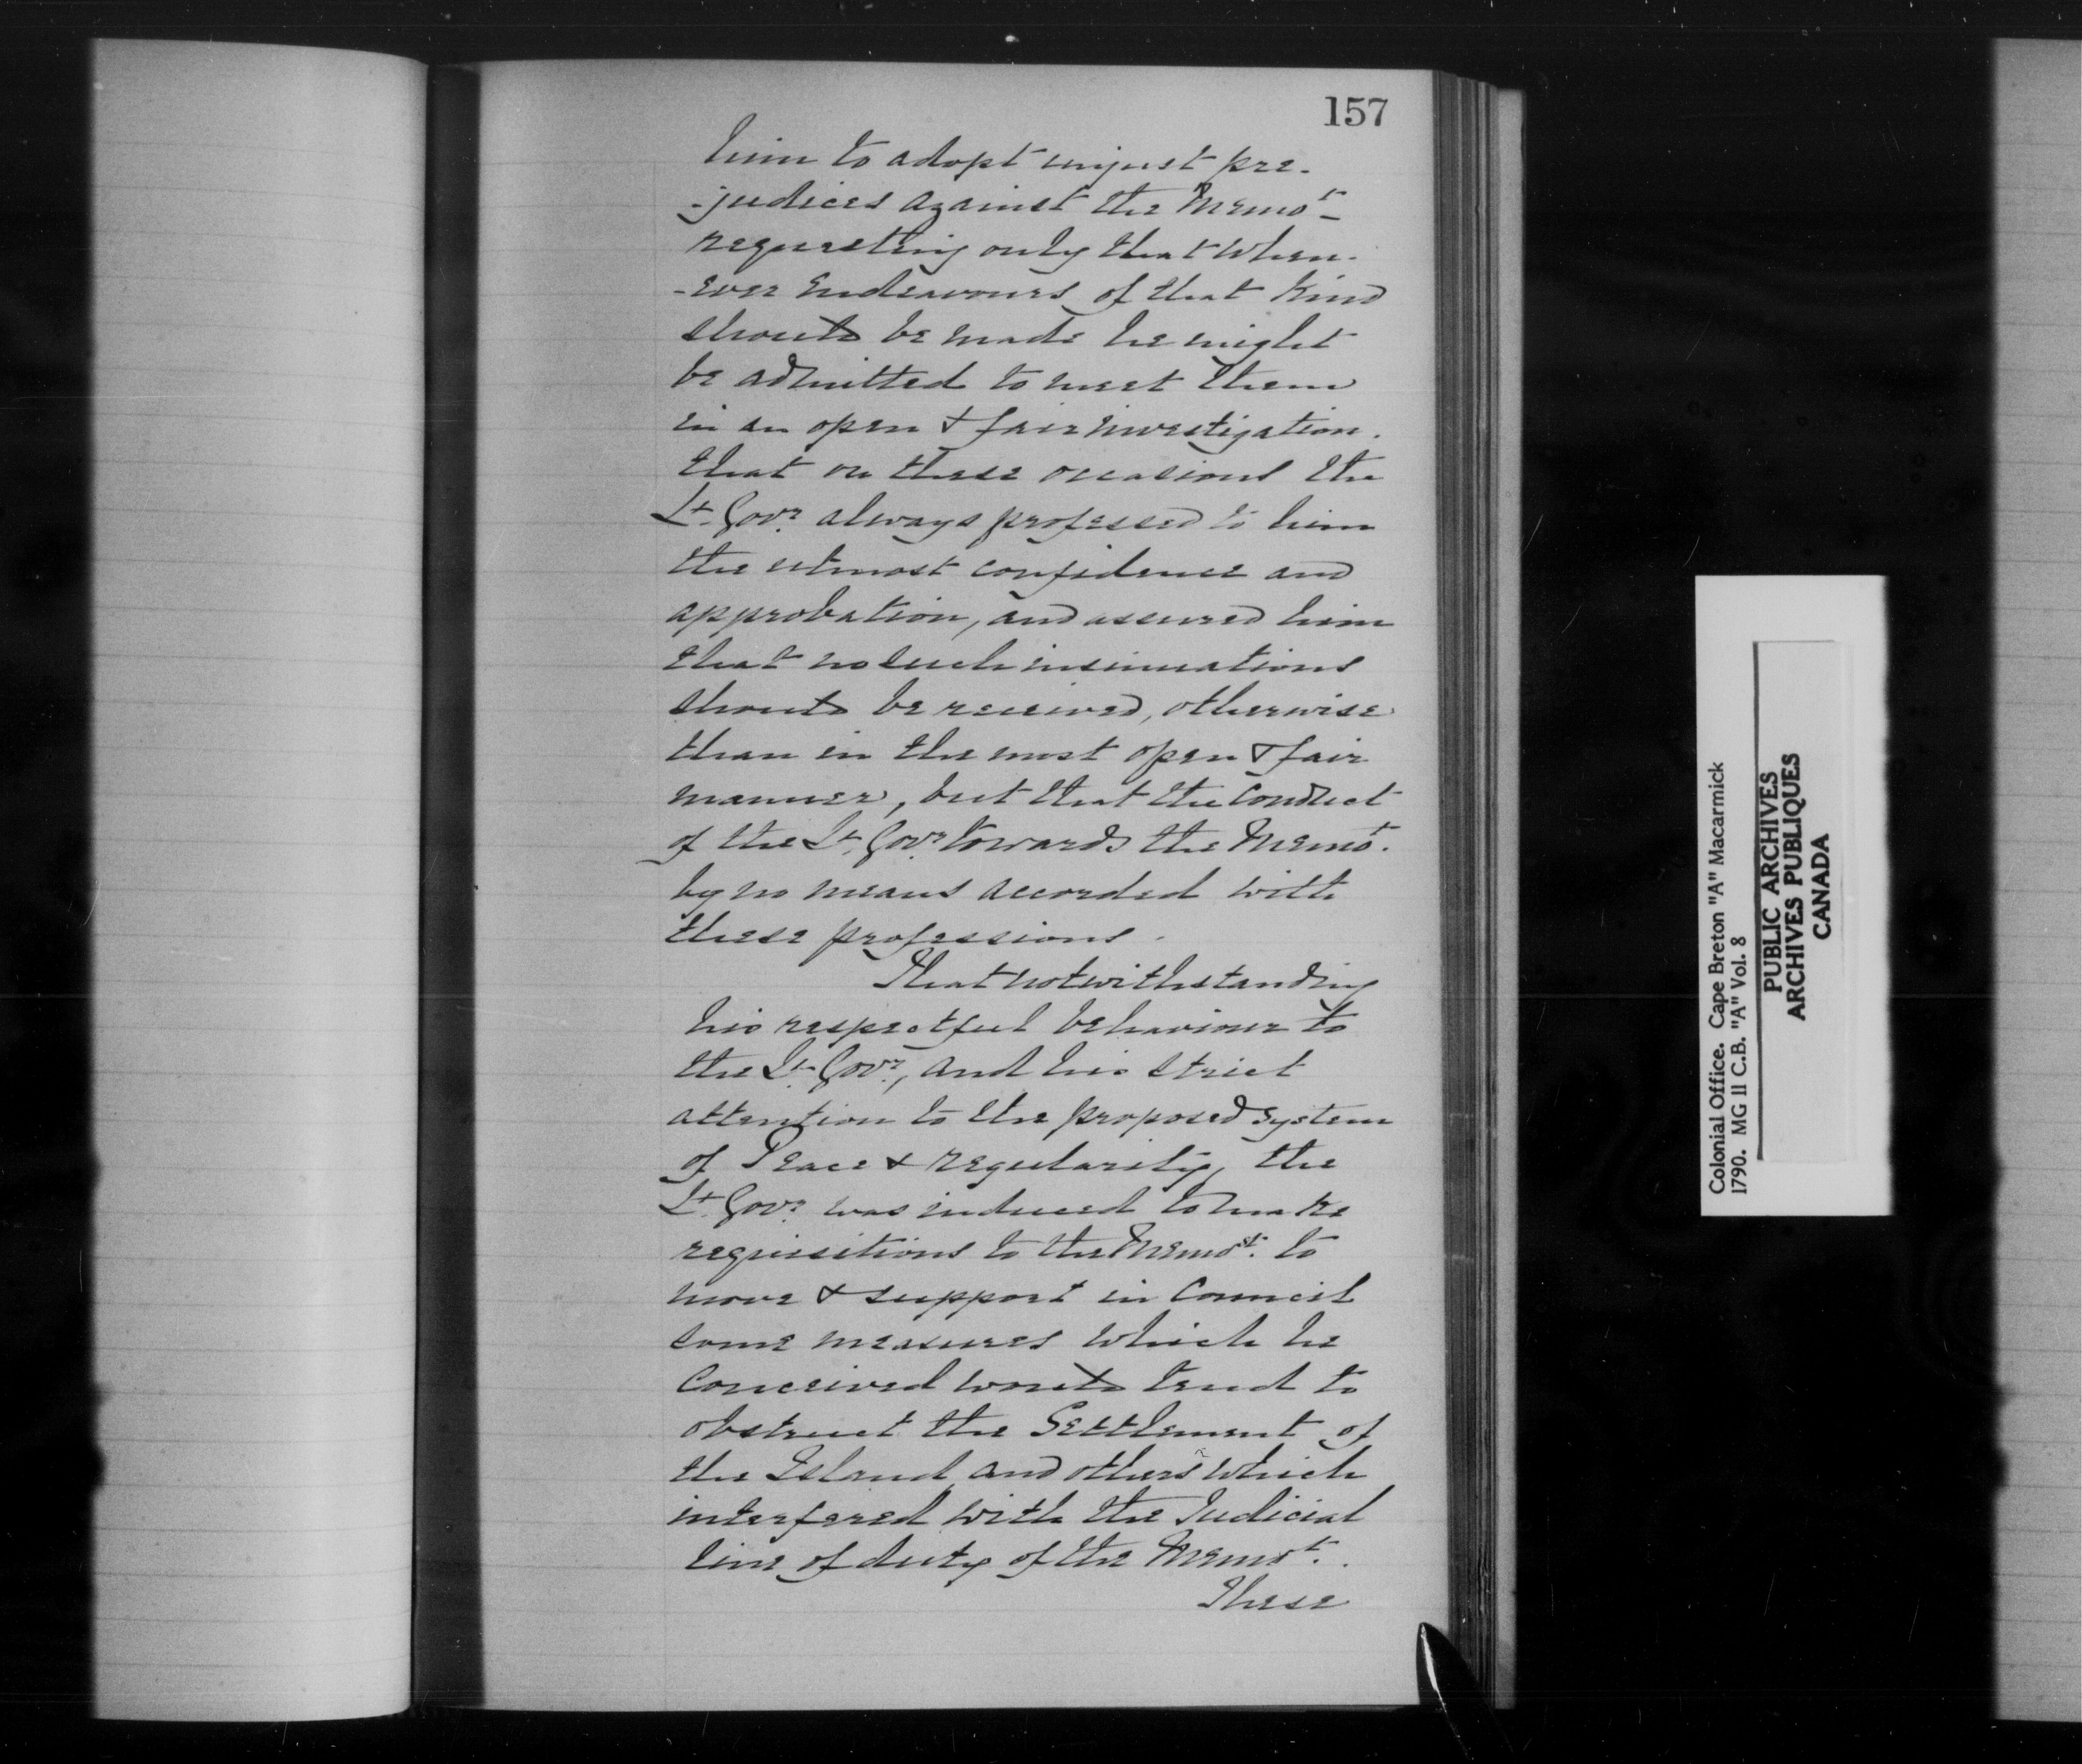 157
him to adopt unjust pre-
-judices against the Memot-
requesting only that when-
-ever Endeavours of that Kind
should be made he might
be admitted to meet them
in an open & fair investigation.
that on these occasions the
Lt. Govr. always professed to him
the utmost confidence and
approbation, and assured him
that no such insinuations
should be received, otherwise
than in the most open & fair
manner, but that the Conduct
of the Lt. Govr. towards the Memot.
by no means accorded with
these professions.
That notwithstanding
his respectful behaviour to
the Lt. Govr., and his strict
attention to the proposed system
of Peace & regularity, the
Lt. Govr. was induced to make
requisitions to the Memot. to
move & support in Council
some measures which he
Conceived would tend to
obstruct the Settlement of
the Island and others which
interfered with the Judicial
line of duty of the Memot.
These
Colonial Office. Cape Breton "A" Macarmick
1790. MG 11 C.B. "A" Vol. 8
PUBLIC ARCHIVES
ARCHIVES PUBLIQUES
CANADA